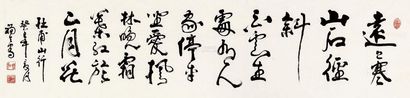 遠上寒
山石徑
斜
白雲生
處有人
家停車
坐愛楓
林晚霜
葉紅於
二月花
山行